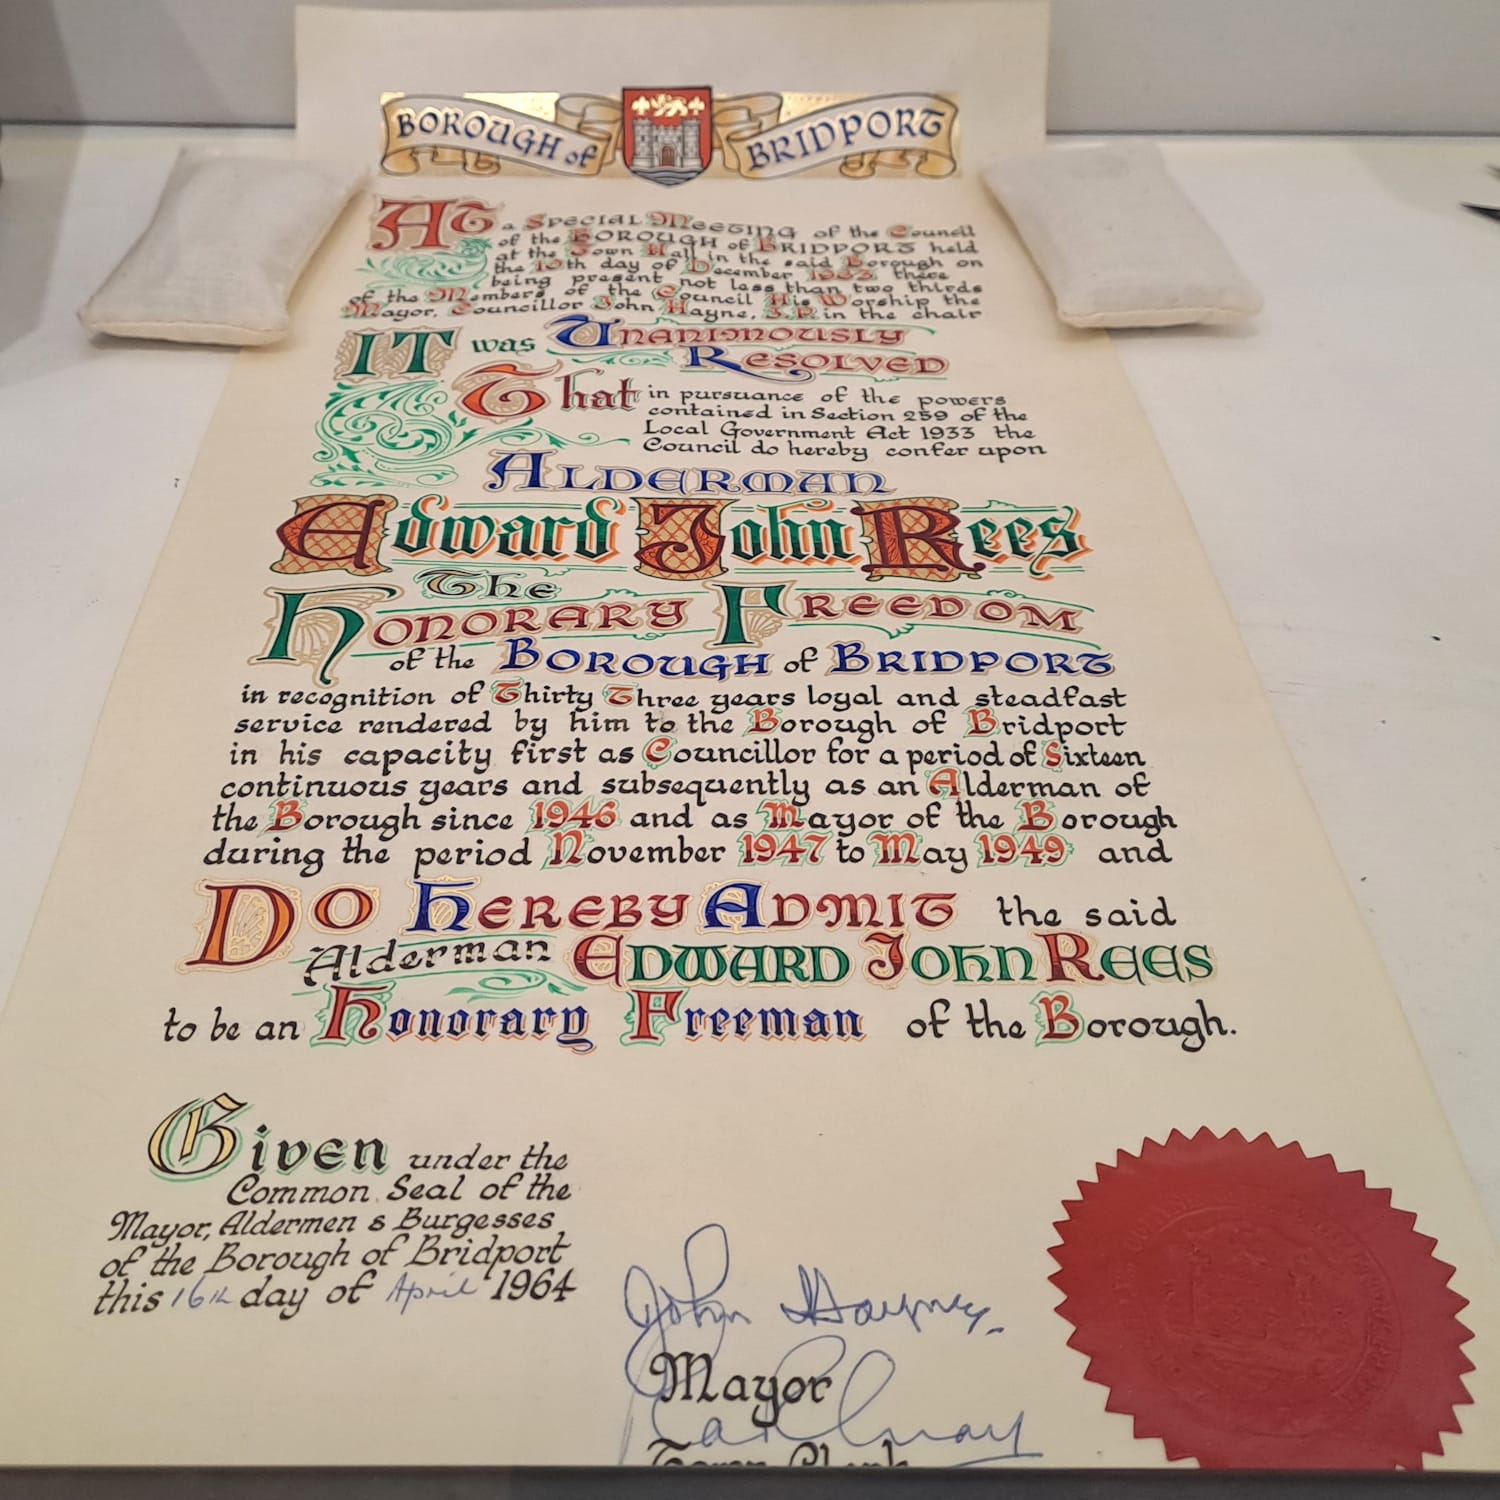 BOROUGH of BRIDPORT
At a Special Meeting of the Council
of the BOROUGH of BRIDPORT held
at the Town Hall in the said Borough on
the 10th day of December 1963 there
being present not less than two thirds
of the Members of the Council His Worship the
Mayor, Councillor John Hayne, J.P. in the chair
IT was Unanimously
Resolved
That in pursuance of the powers
contained in Section 259 of the
Local Government Act 1933 the
Council do hereby confer upon
ALDERMAN
Edward John Rees
The
Honorary Freedom
of the BOROUGH of BRIDPORT
in recognition of Thirty Three years loyal and steadfast
service rendered by him to the Borough of Bridport
in his capacity first as Councillor for a period of Sixteen
continuous years and subsequently as an Alderman of
the Borough since 1946 and as Mayor of the Borough
during the period November 1947 to May 1949 and
DO HEREBY ADMIT the said
Alderman EDWARD JOHN REES
to be an Honorary Freeman of the Borough.
Given under the
Common Seal of the
Mayor, Aldermen & Burgesses
of the Borough of Bridport
this 16th day of April 1964
John Hayne
Mayor
Town Clerk